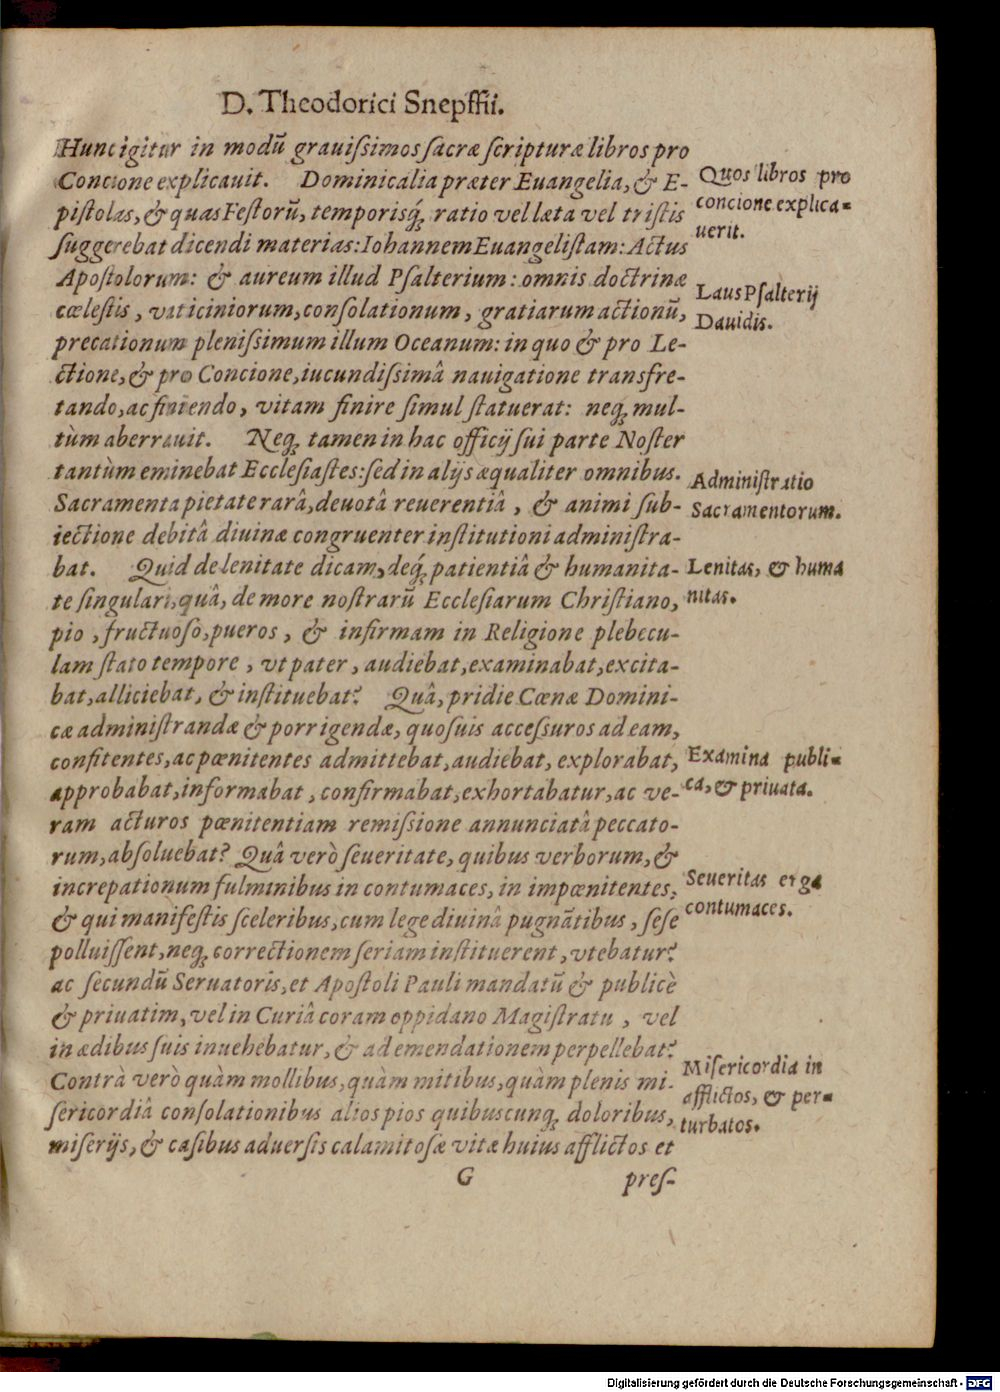 D. Theodorici Snepffii.
Hunc igitur in modū grauiſsimos ſacræ ſcripturæ libros pro
Concione explicauit. Dominicalia præter Euangelia, & E-
piſtolas, & quas Feſtorū, temporisq́; ratio vel læta vel triſtis
ſuggerebat dicendi materias: Iohannem Euangeliſtam: Actus
Apoſtolorum: & aureum illud Pſalterium: omnis doctrinæ
cœleſtis, vaticiniorum, conſolationum, gratiarum actionū,
precationum pleniſsimum illum Oceanum: in quo & pro Le-
ctione, & pro Concione, iucundiſsimâ nauigatione transfre-
tando, ac finiendo, vitam finire ſimul ſtatuerat: neq; mul-
tùm aberrauit. Neq; tamen in hac officij ſui parte Noſter
tantùm eminebat Eccleſiaſtes: ſed in alijs æqualiter omnibus.
Sacramenta pietate rarâ, deuotâ reuerentiâ, & animi ſub-
iectione debitâ diuinæ congruenter inſtitutioni adminiſtra-
bat. Quid de lenitate dicam, deq́; patientiâ & humanita-
te ſingulari, quâ, de more noſtrarū Eccleſiarum Chriſtiano,
pio, fructuoſo, pueros, & infirmam in Religione plebecu-
lam ſtato tempore, vt pater, audiebat, examinabat, excita-
bat, alliciebat, & inſtituebat? Quâ, pridie Cœnæ Domini-
cæ adminiſtrandæ & porrigendæ, quoſuis acceſsuros ad eam,
confitentes, ac pœnitentes admittebat, audiebat, explorabat,
approbabat, informabat, confirmabat, exhortabatur, ac ve-
ram acturos pœnitentiam remiſsione annunciatâ peccato-
rum, abſoluebat? Quâ verò ſeueritate, quibus verborum, &
increpationum fulminibus in contumaces, in impœnitentes,
& qui manifeſtis ſceleribus, cum lege diuinâ pugnātibus, ſeſe
polluiſſent, neq; correctionem ſeriam inſtituerent, vtebatur?
ac ſecundū Seruatoris, et Apoſtoli Pauli mandatū & publicè
& priuatim, vel in Curiâ coram oppidano Magiſtratu, vel
in ædibus ſuis inuehebatur, & ad emendationem perpellebat?
Contrà verò quàm mollibus, quàm mitibus, quàm plenis mi-
ſericordiâ conſolationibus alios pios quibuscunq; doloribus,
miſerijs, & caſibus aduerſis calamitoſæ vitæ huius afflictos et
G
preſ-
Quos libros pro
concione explica-
uerit.
Laus Pſalterij
Dauidis.
Adminiſtratio
Sacramentorum.
Lenitas, & huma
nitas.
Examina publi-
ca, & priuata.
Seueritas erga
contumaces.
Miſericordia in
afflictos, & per-
turbatos.
Digitalisierung gefördert durch die Deutsche Forschungsgemeinschaft - DFG